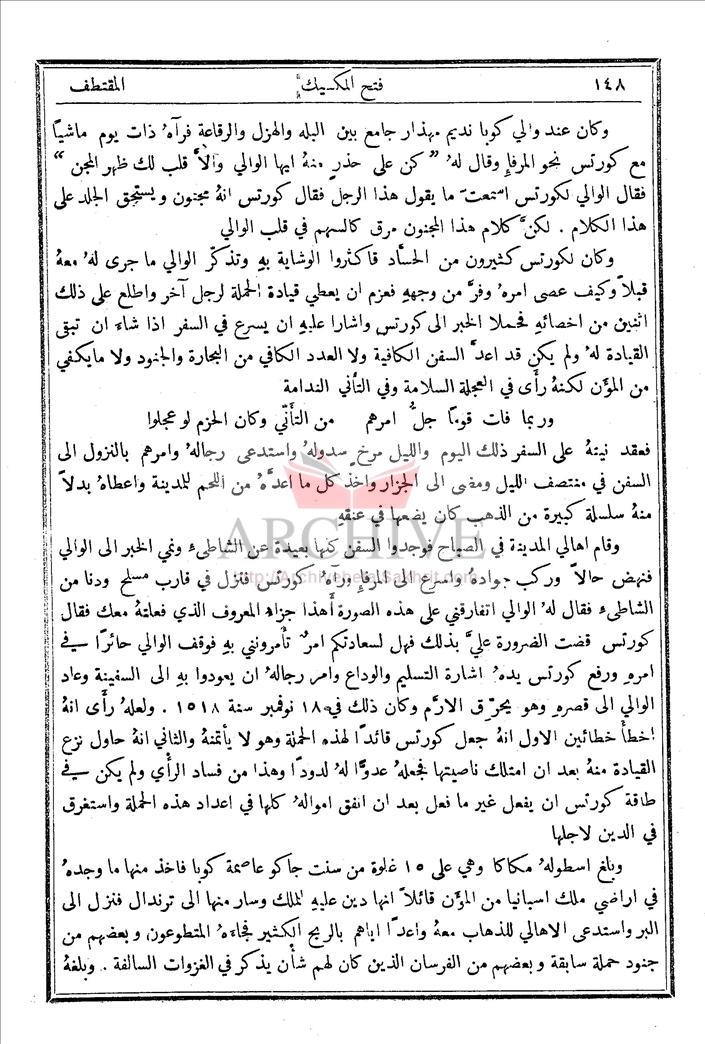 ١٤٨ فتح المكسيك المقتطف
وكان عند والي كوبا نديم مهذار جامع بين البله والهزل والرقاعة فرآهُ ذات يوم ماشيًا
مع كورتس نحو المرفإِ وقال لهُ ” كن على حذرٍ منهُ ايها الوالي والاَّ قلب لك ظهر المجن “
فقال الوالي لكورتس اسمعتَ ما يقول هذا الرجل فقال كورتس انهُ مجنون ويستحق الجلد على
هذا الكلام . لكنَّ كلام هذا المجنون مرق كالسهم في قلب الوالي
وكان لكورتس كثيرون من الحسَّاد فاكثروا الوشاية بهِ وتذكَّر الوالي ما جرى لهُ معهُ
قبلاً وكيف عصى امرهُ وفرَّ من وجههِ فعزم ان يعطي قيادة الحملة لرجل آخر واطلع على ذلك
اثنين من اخصائهِ فحملا الخبر الى كورتس واشارا عليهِ ان يسرع في السفر اذا شاءَ ان تبقى
القيادة لهُ ولم يكن قد اعدَّ السفن الكافية ولا العدد الكافي من البحارة والجنود ولا ما يكفي
من المؤن لكنهُ رأى في العجلة السلامة وفي التأني الندامة
وربما فات قومًا جلُّ امرهم من التأنّي وكان الحزم لو عجلوا
فعقد نيتهُ على السفر ذلك اليوم والليل مرخٍ سدولهُ واستدعى رجالهُ وامرهم بالنزول الى
السفن في منتصف الليل ومضى الى الجزار واخذ كل ما اعدَّهُ من اللحم للمدينة واعطاهُ بدلاً
منهُ سلسلة كبيرة من الذهب كان يضعها في عنقهِ
ARCHIVE
http://Archivebeta.Sakhrit.com
وقام اهالي المدينة في الصباح فوجدوا السفن كلها بعيدة عن الشاطىء ونمي الخبر الى الوالي
فنهض حالاً وركب جوادهُ واسرع الى المرفإِ ورآهُ كورتس فنزل في قارب مسلح ودنا من
الشاطىء فقال لهُ الوالي اتفارقني على هذه الصورة أهذا جزاء المعروف الذي فعلتهُ معك فقال
كورتس قضت الضرورة عليَّ بذلك فهل لسعادتكم امرٌ تأمرونني بهِ فوقف الوالي حائرًا في
امرهِ ورفع كورتس يدهُ اشارة التسليم والوداع وامر رجالهُ ان يعودوا بهِ الى السفينة وعاد
الوالي الى قصرهِ وهو يحرّق الارَّم وكان ذلك في ١٨ نوفمبر سنة ١٥١٨ . ولعلهُ رأى انهُ
اخطأَ خطائين الاول انهُ جعل كورتس قائدًا لهذه الحملة وهو لا يأتمنهُ والثاني انهُ حاول نزع
القيادة منهُ بعد ان امتلك ناصيتها فجعلهُ عدوًّا لهُ لدودًا وهذا من فساد الرأي ولم يكن في
طاقة كورتس ان يفعل غير ما فعل بعد ان انفق اموالهُ كلها في اعداد هذه الحملة واستغرق
في الدين لاجلها
وبلغ اسطولهُ مكاكا وهي على ١٥ غلوة من سنت جاكو عاصمة كوبا فاخذ منها ما وجدهُ
في اراضي ملك اسبانيا من المؤن قائلاً انها دين عليهِ للملك وسار منها الى ترندال فنزل الى
البر واستدعى الاهالي للذهاب معهُ واعدًا اياهم بالربح الكثير فجاءهُ المتطوعون وبعضهم من
جنود حملة سابقة وبعضهم من الفرسان الذين كان لهم شأن يذكر في الغزوات السالفة . وبلغهُ